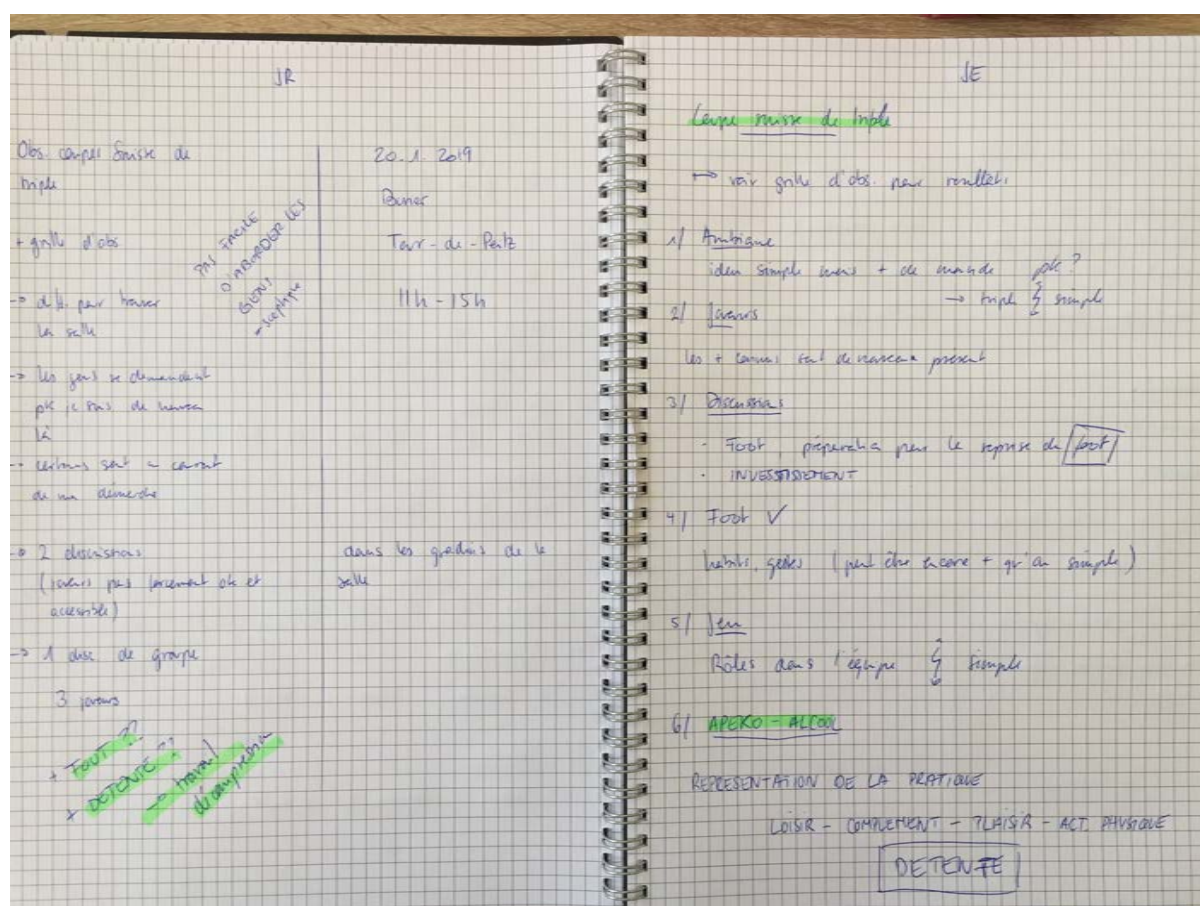 JR
Obs. coupes Suisse de
triple
+ grille d'obs
→ diff. pour trouver
la salle
→ les gens se demandent
pk je suis de nouveau
là
→ certains sont au courant
de ma démarche
→ 2 discussions
(joueurs pas forcément ok et
accessible)
→ 1 disc de groupe
3 joueurs
+ FOOT ??
+ DETENTE ??
→ travail
décompression
PAS FACILE
D'ABORDER LES
GENS
- sceptique
20.1.2019
Tour-de-Peilz
11h-15h
dans les gradins de la
salle
JE
Coupe suisse de triple
→ voir grille d'obs. pour
1/ Ambiance
idem simple mais + de monde pk?
→ triple simple
2/ Joueurs
les + connus sont de nouveau présent
3/ Discussions
- FOOT, préparation pour la reprise du foot
- INVESTISSEMENT
4/ Foot ✓
habits, gestes (peut être encore + qu'en simple)
5/ Jeu
Rôles dans l'équipe simple
6/ APERO - ALCOOL
REPRESENTATION DE LA PRATIQUE
LOISIR - COMPLEMENT - PLAISIR - ACT. PHYSIQUE
DETENTE